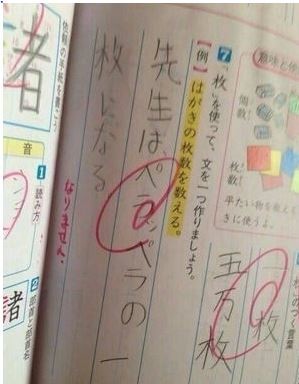 意味と使
個数!
枚数!
平たい物を数える
きに使うよ。
のつく言葉
一枚
五万枚
7 「枚」を使って、文を一つ作りましょう。
【例】はがきの枚数を数える。
先生はペラッペラの一
枚になる
なりません。
者
音
1 読み方
2 部首と部首名
諸